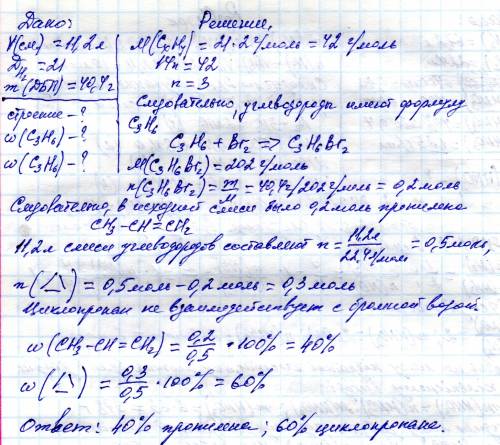 Дано:
V(см.) = 11,2 л
D H₂ = 21
m(ДБП) = 40,4 г
строение - ?
ω(C₃H₆) - ?
ω(C₃H₆) - ?
Решение.
M(CxHy) = 21·2 г/моль = 42 г/моль
14n = 42
n = 3
Следовательно, углеводороды имеют формулу
C₃H₆
C₃H₆ + Br₂ => C₃H₆Br₂
M(C₃H₆Br₂) = 202 г/моль
n(C₃H₆Br₂) = m/M = 40,4 г/202 г/моль = 0,2 моль
Следовательно, в исходной смеси было 0,2 моль пропилена
CH₃-CH=CH₂
11,2 л смеси углеводородов составляют n = 11,2л/22,4л/моль = 0,5 моль,
n(△) = 0,5 моль - 0,2 моль = 0,3 моль
Циклопропан не взаимодействует с бромной водой.
ω(CH₃-CH=CH₂) = 0,2/0,5 · 100% = 40%
ω(△) = 0,3/0,5 · 100% = 60%
Ответ: 40% пропилена; 60% циклопропана.